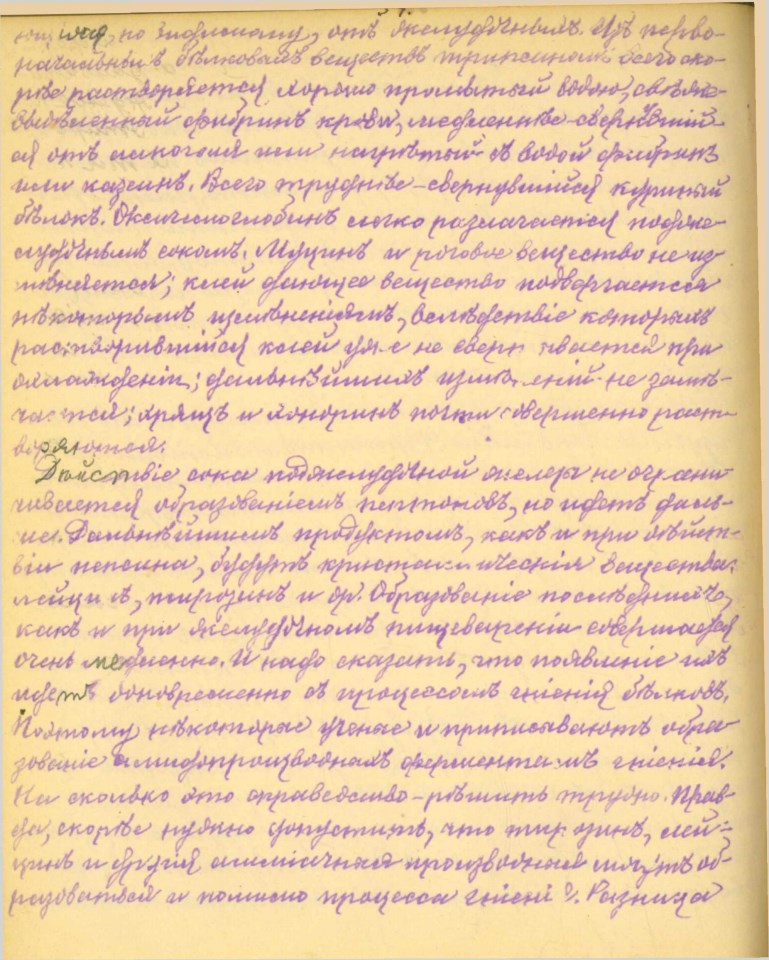 ющіяся, по видимому, отъ желудочныхъ. Изъ перво-
начальныхъ бѣлковыхъ веществъ трипсиномъ всего ско-
рѣе растворяется хорошо промытый водою, свѣже-
выдѣленный фибринъ крови, медленнѣе-свернувшій-
ся отъ алкоголя или нагрѣтый въ водой фибринъ
или казеинъ. Всего труднѣе-свернувшійся куриный
бѣлокъ. Оксигемоглобинъ легко разлагается поджелу-
дочнымъ сокомъ. Муцинъ и роговое вещество не из-
мѣняется; клей дающее вещество подвергается
нѣкоторымъ измѣненіямъ, вслѣдствіе которыхъ
растворившійся клей уже не свертывается при
охлажденіи; дальнѣйшихъ измѣненій не замѣ-
чается; хрящъ и хондринъ почти совершенно раст-
воряются.
Дѣйствіе сока поджелудочной железы не ограни-
чивается образованіемъ пептоновъ, но идетъ даль-
ше. Дальнѣйшимъ продуктомъ, какъ и при дѣйст-
віи пепсина, будутъ кристаллическія вещества:
лейцинъ, тирозинъ и др. Образованіе послѣднихъ,
какъ и при желудочномъ пищевареніи совершается
очень медленно. И надо сказать, что появленіе ихъ
идетъ одновременно съ процессомъ гніенія бѣлковъ.
Поэтому нѣкоторые ученые и приписываютъ обра-
зованіе амидопроизводныхъ ферментамъ гніенія.
На сколько это справедливо-рѣшить трудно. Прав-
да, скорѣе нужно допустить, что тирозинъ, лей-
цинъ и другія амміачныя производныя могутъ об-
разоваться и помимо процесса гніенія. Разница